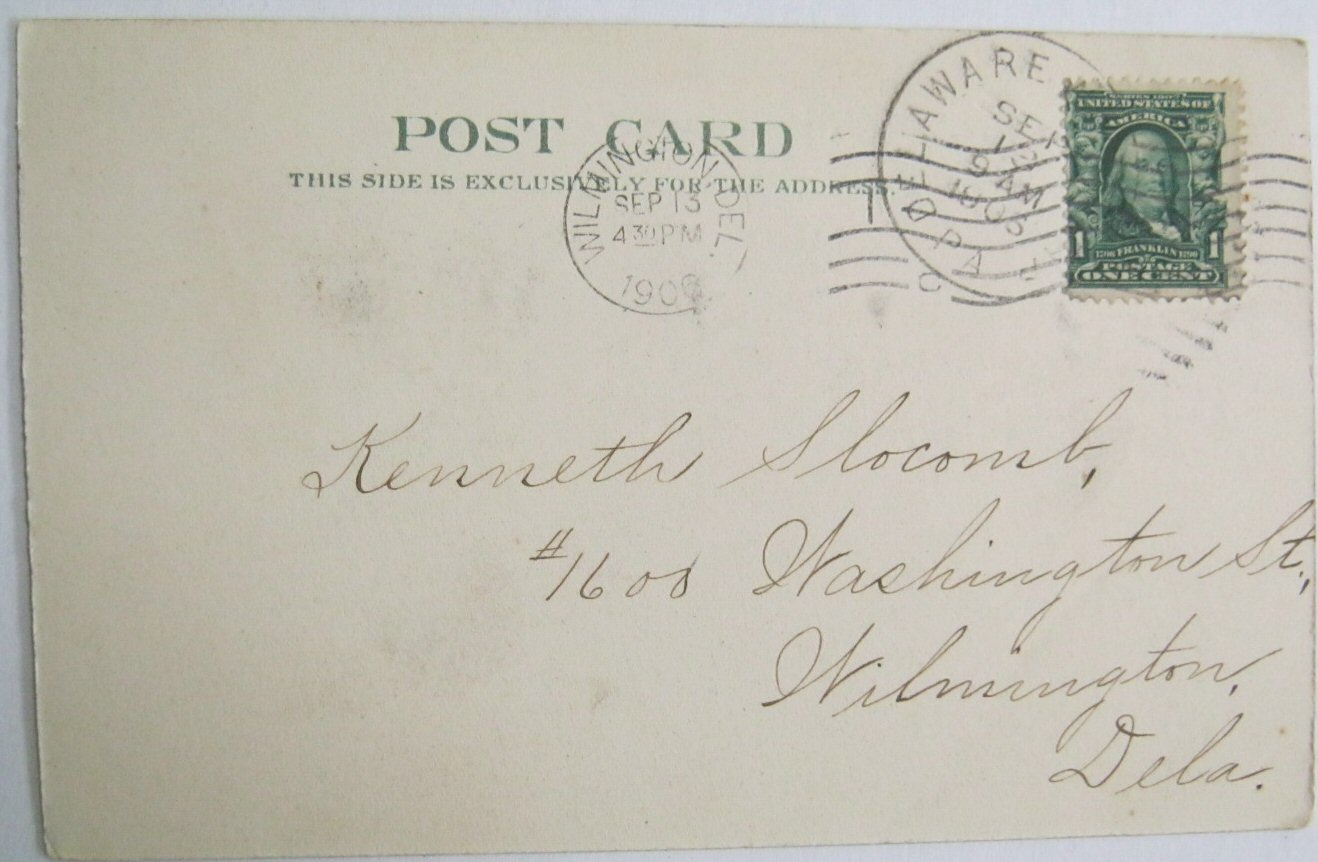 POST CARD
THIS SIDE IS EXCLUSIVELY FOR THE ADDRESS.
WILMINGTON, DEL.
SEP 13
4 30 PM
190
DELAWARE
SEP
9 AM
PA
1
SERIES 1902
UNITED STATES OF
AMERICA
1 1706 FRANKLIN 1790 1
POSTAGE
ONE CENT
Kenneth Slocomb,
#1600 Washington St.,
Wilmington,
Dela.